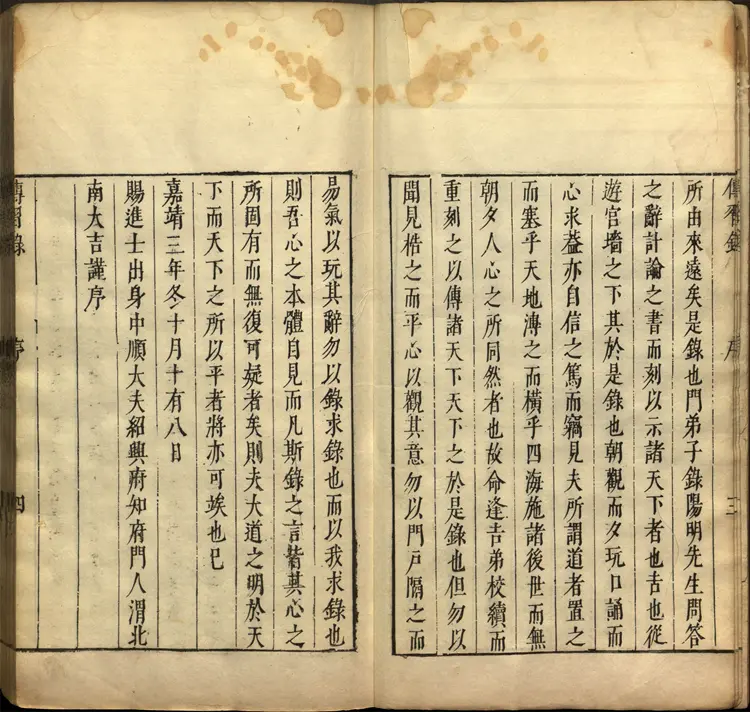 傳習錄 序 三
所由來遠矣是錄也門弟子錄陽明先生問答
之辭討論之書而刻以示諸天下者也吉也從
遊宮墻之下其於是錄也朝觀而夕玩口誦而
心求蓋亦自信之篤而竊見夫所謂道者置之
而塞乎天地溥之而橫乎四海施諸後世而無
朝夕人心之所同然者也故命逢吉弟校續而
重刻之以傳諸天下天下之於是錄也但勿以
聞見梏之而平心以觀其意勿以門戶隔之而
易氣以玩其辭勿以錄求錄也而以我求錄也
則吾心之本體自見而凡斯錄之言皆其心之
所固有而無復可疑者矣則夫大道之明於天
下而天下之所以平者將亦可竢也已
嘉靖三年冬十月十有八日
賜進士出身中順大夫紹興府知府門人渭北
南大吉謹序
傳習錄 序 四